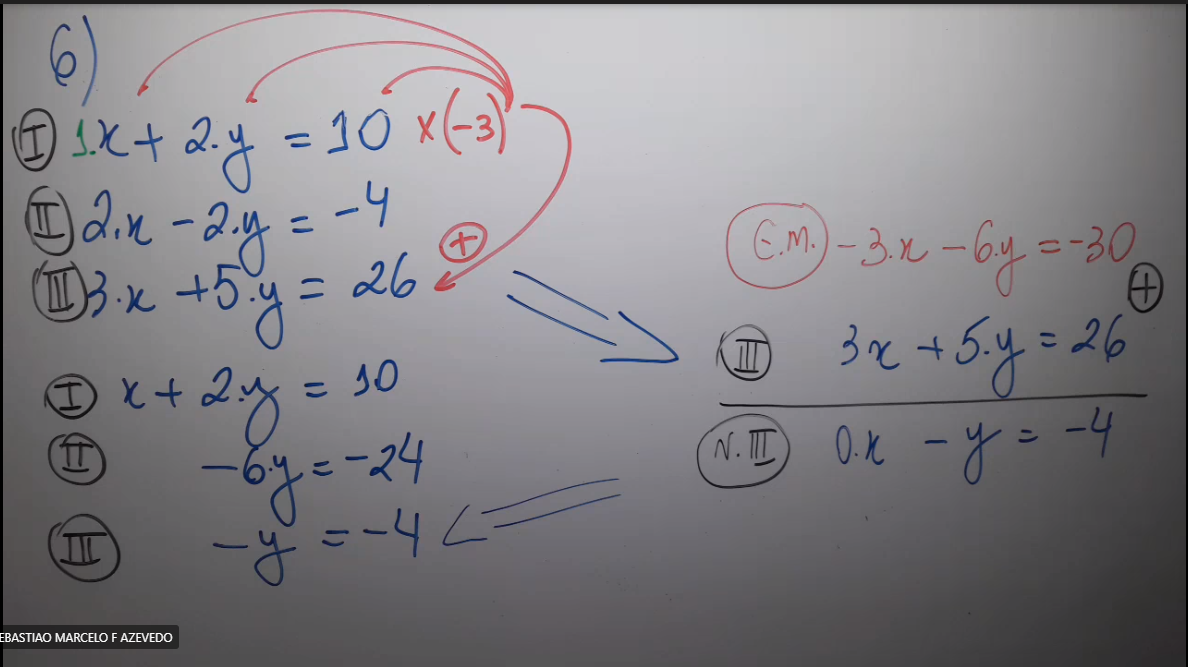 6)
I 1.x + 2.y = 10 x(-3)
II 2.x - 2.y = -4
III 3.x + 5.y = 26 +
I x + 2.y = 10
II -6.y = -24
III -y = -4
E.M. -3.x - 6.y = -30
+
III 3x + 5.y = 26
N.III 0.x - y = -4
EBASTIAO MARCELO F AZEVEDO